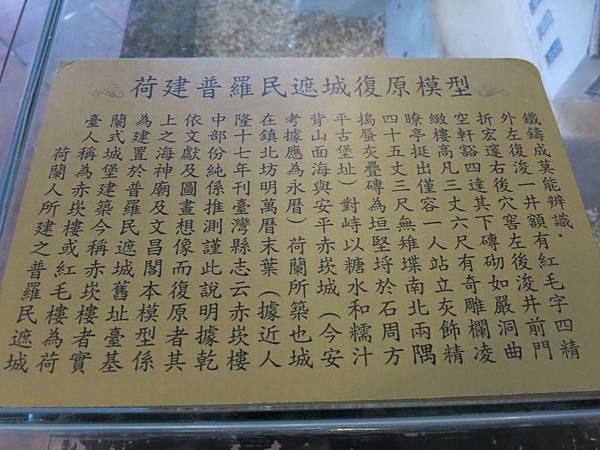 荷建普羅民遮城復原模型
荷蘭人所建之普羅民遮城
臺人稱為赤崁樓或紅毛樓為荷
蘭式城堡建築今稱赤崁樓者實
為建置於普羅民遮城舊址臺基
上之海神廟及文昌閣本模型係
依文獻及圖畫想像而復原者其
中部份純係推測謹此說明據乾
隆十七年刊臺灣縣志云赤崁樓
在鎮北坊明萬曆末葉（據近人
考據應為永曆）荷蘭所築也城
背山面海與安平赤崁城（今安
平古堡址）對峙以糖水和糯汁
搗蜃灰疊磚為垣堅埒於石周方
四十五丈三尺無雉堞南北兩隅
瞭亭挺出僅容一人站立灰飾精
緻樓高凡三丈六尺有奇雕欄凌
空軒豁四達其下磚砌如嚴洞曲
折宏邃右後穴窖左後浚井前門
外左復浚一井額有紅毛字四精
鐵鑄成莫能辨識．